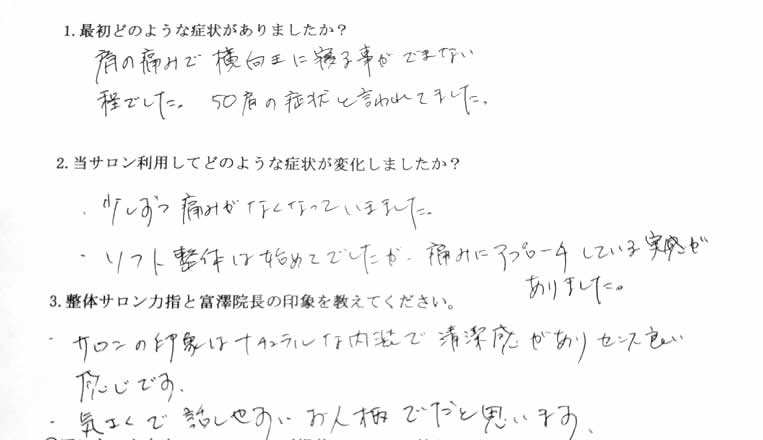 1.最初どのような症状がありましたか?
肩の痛みで横向きに寝る事ができない
程でした。 50肩の症状と言われてました。
2.当サロン利用してどのような症状が変化しましたか?
・少しずつ痛みがなくなっていきました。
・ソフト整体は始めてでしたが、痛みにアプローチしている実感が
ありました。
3.整体サロン力指と富澤院長の印象を教えてください。
・サロンの印象はナチュラルな内装で清潔感がありセンス良い
感じです。
・気さくで話しやすいお人柄でだと思います。